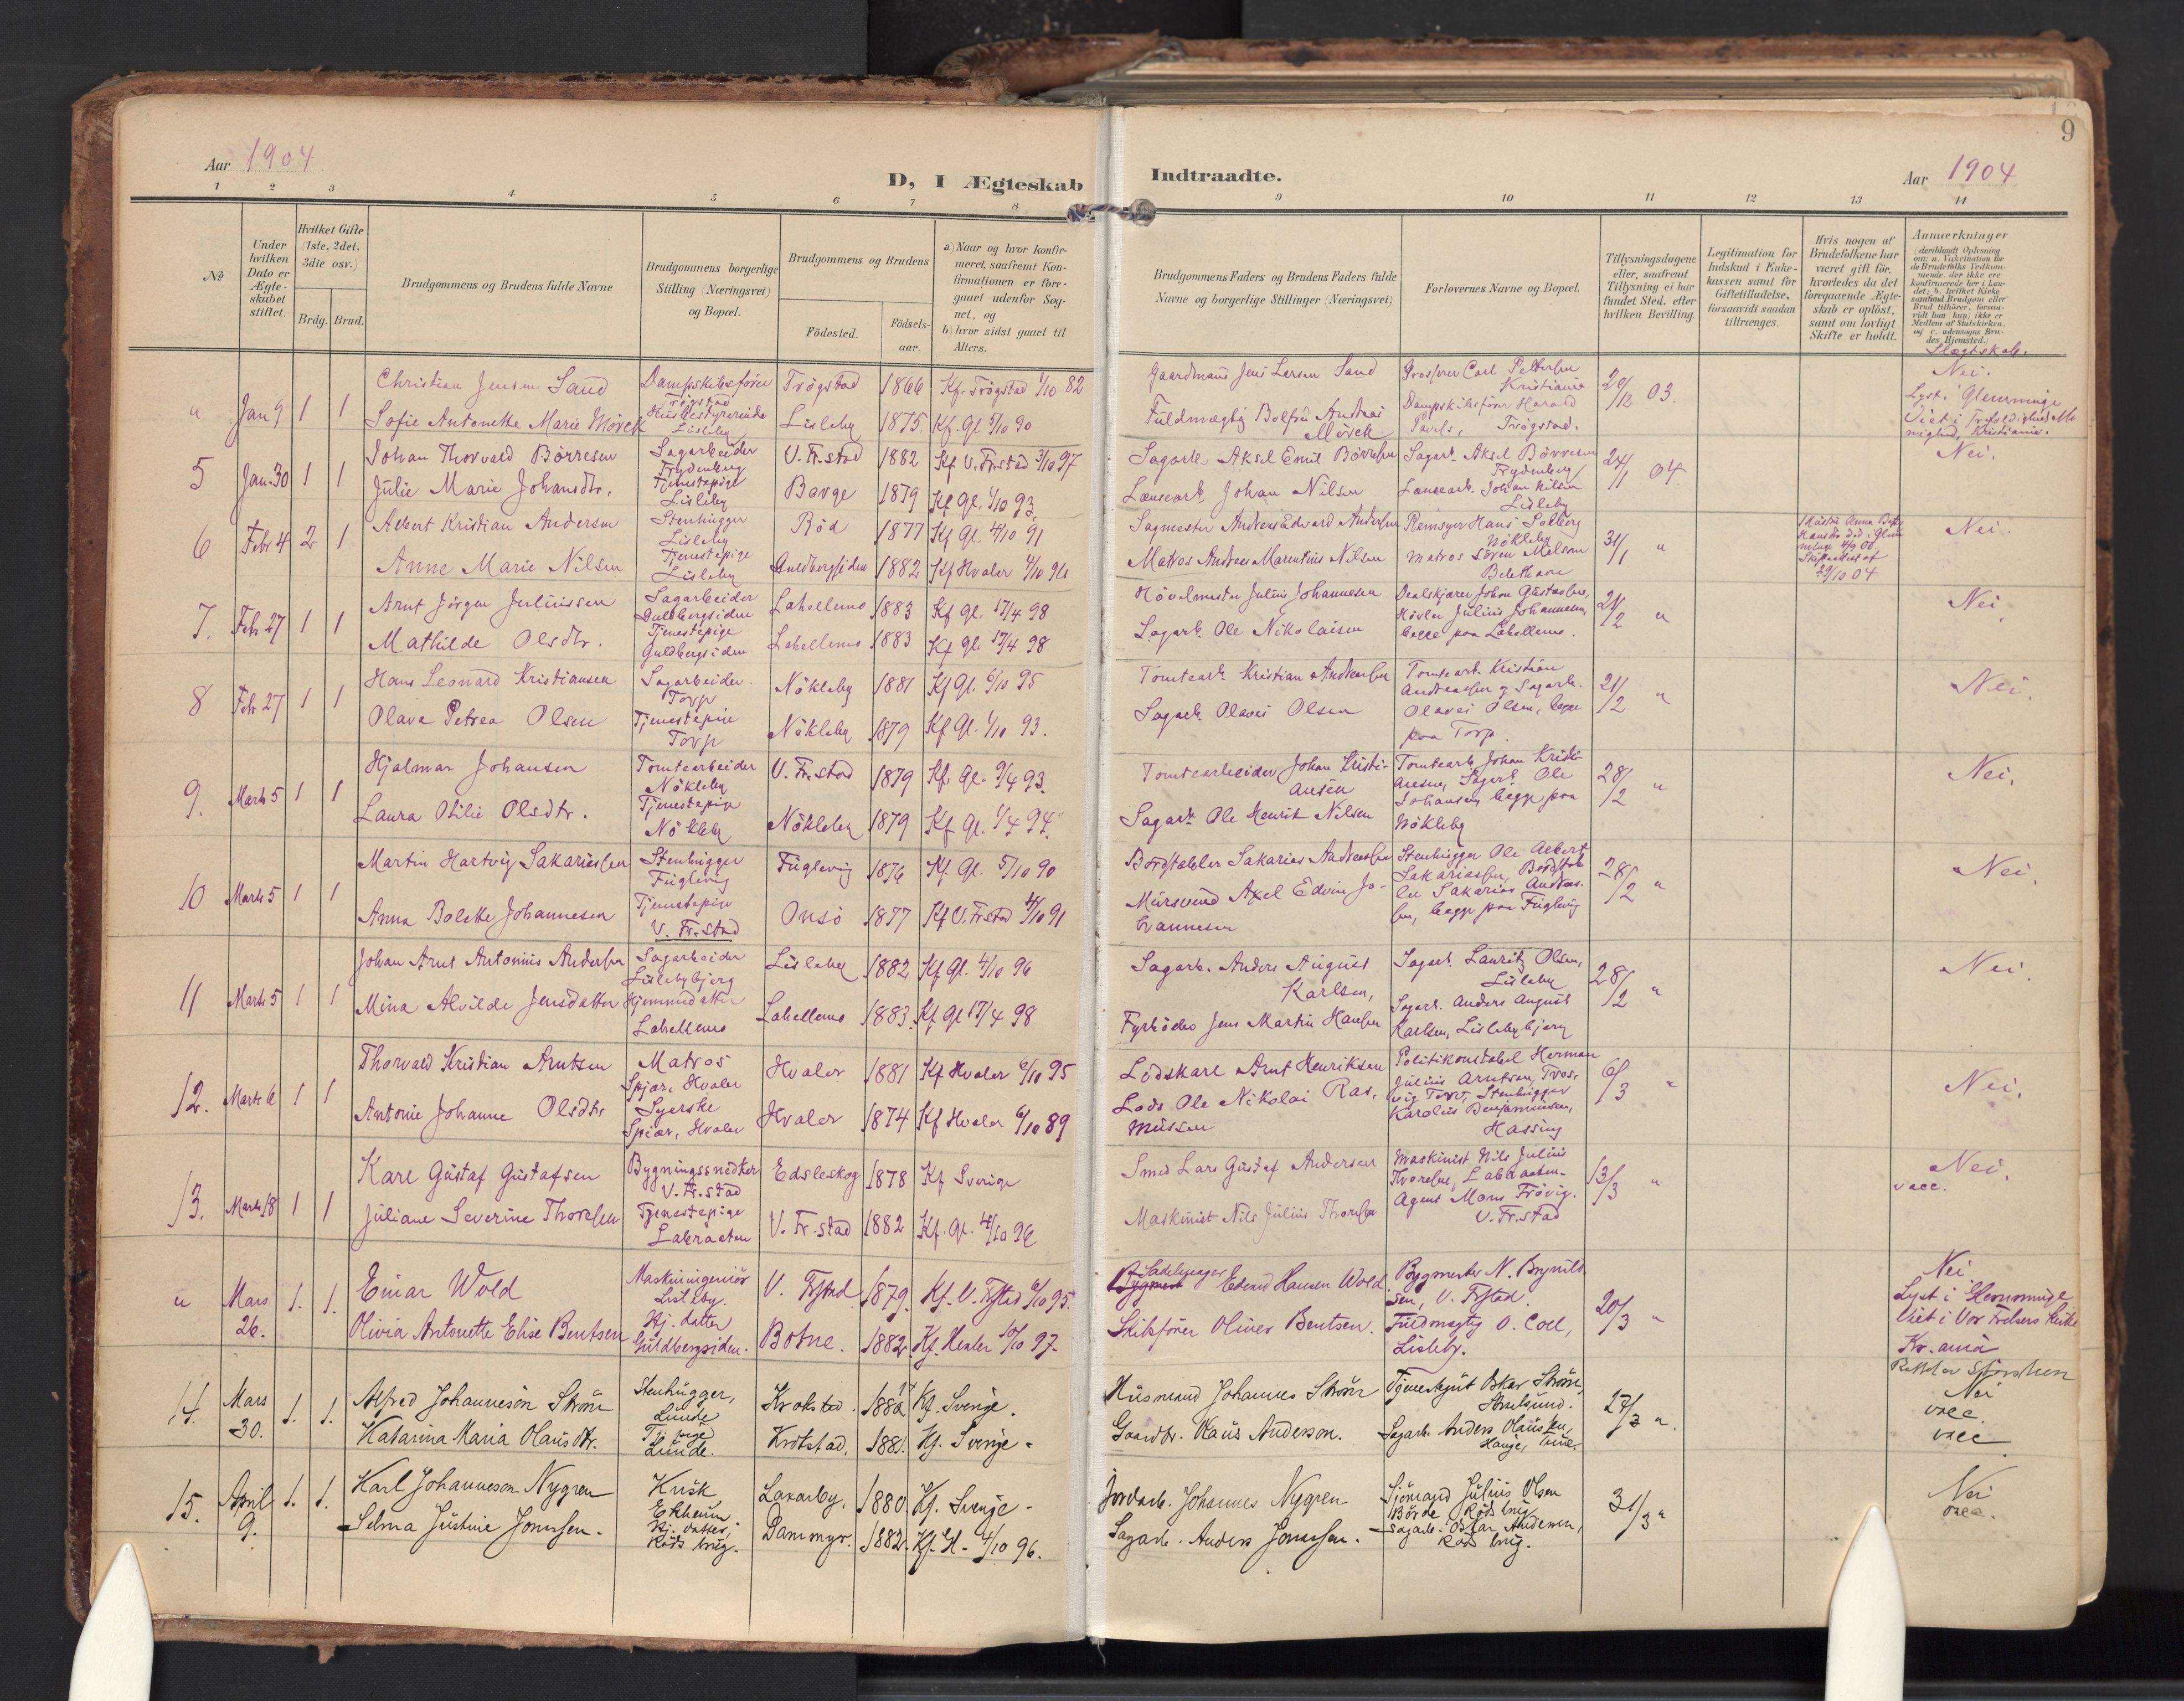 Aar 1904
D, I Ægteskab Indtraadte.
Aar 1904
9
1 2 3 4 5 6 7 8 9 10 11 12 13 14
№
Under hvilken Dato er Ægteskabet stiftet.
Hvilket Gifte (1ste, 2det, 3die osv.)
Brdg. Brud.
Brudgommens og Brudens fulde Navne
Brudgommens borgerlige Stilling (Næringsvei) og Bopæl.
Brudgommens og Brudens
Födested.
Födselsaar.
a) Naar og hvor konfirmeret, saafremt Konfirmationen er foregaaet udenfor Sognet, og
b) hvor sidst gaaet til Alters.
Brudgommens Faders og Brudens Faders fulde Navne og borgerlige Stillinger (Næringsvei)
Forlovernes Navne og Bopæl.
Tillysningsdagene eller, saafremt Tillysning ei har fundet Sted, efter hvilken Bevilling.
Legitimation for Indskud i Enkekassen samt for Giftetilladelse, forsaavidt saadan tiltrænges.
Hvis nogen af Brudefolkene har været gift för, hvorledes da det foregaaende Ægteskab er oplöst, samt om lovligt Skifte er holdt.
Anmærkninger
Slægtskab.
" Jan 9 1 1
Christian Jensen Sand Dampskibsförer Trögstad Trögstad 1866 Kf. Trögstad 1/10 82
Sofie Antonette Marie Mörck Husbestyrerinde Lisleby Lisleby 1875 Kf. Gl. 5/10 90
Gaardmand Jens Larsen Sand
Fuldmægtig Bolfred Andreas Mörck
Grosserer Carl Pettersen Kristiania
Dampskibsförer Harald Pavels, Trögstad.
29/12 03.
Nei.
Lyst i Glemminge
Viet i Trefoldighed Menighed, Kristiania.
5 Jan. 30 1 1
Johan Thorvald Börresen Sagarbeider Trydenberg V. Fr.stad 1882 Kf V. Fr.stad 3/10 97
Julie Marie Johansdtr. Tjenestepige Lisleby Borge 1879 Kf Gl. 1/10 93.
Sagarb. Aksel Emil Börresen
Lænsearb. Johan Nilsen
Sagarb. Aksel Börresen Trydenberg
Lænsearb. Johan Nilsen Lisleby
24/1 04.
Nei.
6 Febr 4 2 1
Albert Kristian Andersen Stenhugger Lisleby Röd 1877 Kf Gl. 4/10 91
Anne Marie Nilsen Tjenestepige Lisleby Guldbergsiden 1882 Kf Hvaler 4/10 96
Sagmester Andreas Edvard Andersen
Matros Andreas Marentius Nilsen
Remsyer Hans Solberg Nökleby
Matros Sören Nilsen Belethave
31/1 "
Nei.
7. Febr 27 1 1
Arnt Jörgen Juliussen Sagarbeider Guldbergsiden Lahellemo 1883 Kf Gl. 17/4 98
Mathilde Olsdtr. Tjenestepige Guldbergsiden Lahellemo 1883 Kf Gl. 17/4 98
Hövelmester Julius Johannesen
Sagarb. Ole Nikolaisen
Dealskjærer Johan Gustavsen,
Hövler Julius Johannesen,
begge paa Lahellemo.
21/2 "
Nei
8 Febr 27 1 1
Hans Leonard Kristiansen Sagarbeider. Torp Nökleby 1881 Kf Gl. 6/10 95
Olava Petrea Olsen Tjenestepige Torp Nökleby 1879 Kf Gl. 1/10 93.
Tomtearb Kristian Andreassen
Sagarb Olavus Olsen
Tomtearb. Kristian Andreassen og Sagarb. Olavus Olsen, begge paa Torp.
21/2 "
Nei.
9. Marts 5 1 1
Hjalmar Johansen Tomtearbeider Nökleby V. Fr.stad 1879 Kf. Gl. 9/4 93.
Laura Otilie Olsdtr. Tjenestepige Nökleby Nökleby 1879 Kf Gl. 1/4 94.
Tomtearbeider Johan Kristiansen
Sagarb. Ole Henrik Nilsen
Tomtearb. Johan Kristiansen, Sagarb. Ole Johansen, begge paa Nökleby
28/2 "
Nei.
10 Marts 5 1 1
Martin Hartvig Sakariassen Stenhugger Fuglevig Fuglevig 1876 Kf. Gl. 5/10 90
Anna Bolette Johannesen Tjenestepige V. Fr.stad Onsö 1877 Kf V. Fr.stad 4/10 91
Bordstabler Sakarias Andreassen
Mursvend Axel Edvin Johannesen
Stenhugger Ole Albert Sakariassen, Bordstabler Sakarias Andreassen, begge paa Fuglevig
28/2 "
Nei.
11 Marts 5 1 1
Johan Arnt Antonius Andersen Sagarbeider Lislebybjerg Lisleby 1882 Kf Gl. 4/10 96
Mina Alvilde Jensdatter Hjemmedatter Lahellemo Lahellemo 1883. Kf Gl 17/4 98
Sagarb. Anders August Karlsen,
Fyrböder Jens Martin Hansen
Sagarb. Lauritz Olsen, Lisleby
Sagarb. Anders August Karlsen, Lislebybjerg
28/2 "
Nei.
12. Marts 6 1 1
Thorvald Kristian Arntsen Matros Spjær, Hvaler Hvaler 1881 Kf Hvaler 6/10 95
Antonie Johanne Olsdtr Syerske Spjær, Hvaler Hvaler 1874 Kf Hvaler 6/10 89
Lodskarl Arnt Henriksen
Lods Ole Nikolai Rasmussen
Politikonstabel Herman Julius Arntsen, Stenhugger Karolius Benjaminsen, Hassing
6/3 "
Nei.
13. Marts 18 1 1
Karl Gustaf Gustafsen Bygningssnedker V. Fr.stad Edsleskog 1878 Kf Sverige
Juliane Severine Thoresen Tjenestepige Labraaten V. Fr.stad 1882 Kf. Gl. 4/10 96
Smed Lars Gustaf Andersen
Maskinist Nils Julius Thoresen
Maskinist Nils Julius Thoresen, Labraaten.
Agent Mons Frövig. V. Fr.stad
13/3 "
Nei.
vacc.
" Mars 26. 1. 1.
Einar Wold Maskiningeniör Lisleby. V. Fr.stad 1879. Kf. V. Fr.stad 6/10 95.
Olivia Antonette Elise Bentsen Hj. datter Guldbergsiden. Botne. 1882. Kf. Hvaler 10/10 97.
Sadelmager Edvard Hansen Wold.
Skibsförer Oliver Bentsen.
Bygmester N. Brynildsen, V. Fr.stad.
Fuldmægtig O. Coll, Lisleby.
20/3 "
Nei
Lyst i Glemminge
Viet i Vor Frelsers Kirke
Kr.ania
14. Mars 30. 1. 1.
Alfred Johanneson Ström Stenhugger, Lunde Krokstad. 1882 Kf. Sverige.
Katarina Maria Olausdtr. Tj. pige Lunde. Krokstad. 1881. Kf. Sverige.
Husmand Johannes Ström
Gaardbr. Olaus Anderson.
Tjenestegut Oskar Ström,
Sagarb. Anders Olaussen, Hauge,
27/3 ".
Nei
vacc.
vacc
15. April 9. 1. 1.
Karl Johanneson Nygren Kusk Ekheim. Laxarby. 1880. Kf. Sverige.
Selma Justine Jonassen. Hj. datter, Röds brug. Dammyr. 1882. Kf. Gl. 4/10 96.
Jordarb. Johannes Nygren
Sagarb. Anders Jonassen.
Sjömand Julius Olsen Börde Röds brug
Sagarb. Oskar Andersen, Röds brug.
31/3 "
Nei
vacc.